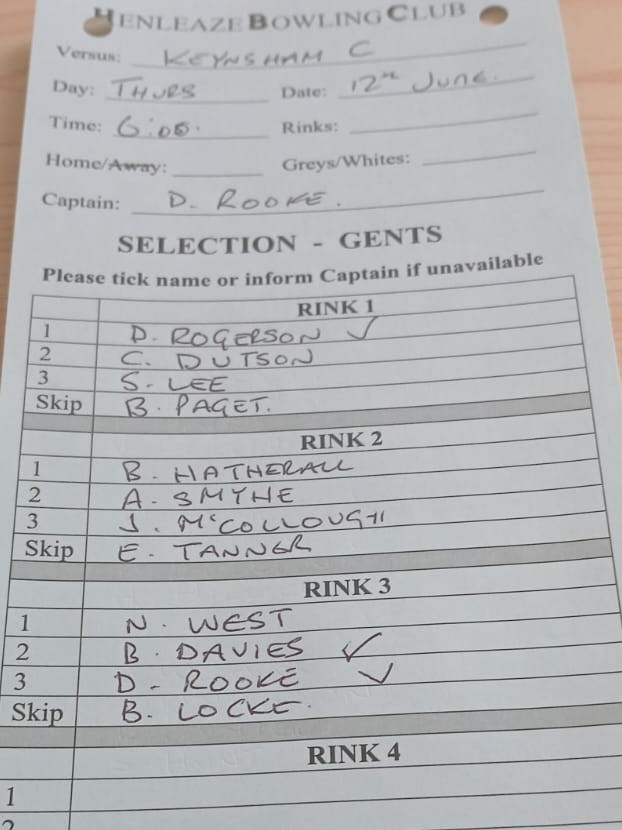 HENLEAZE BOWLING CLUB
Versus: KEYNSHAM C
Day: THURS Date: 12TH JUNE.
Time: 6:00. Rinks:
Home/Away: Greys/Whites:
Captain: D. ROOKE.
SELECTION - GENTS
Please tick name or inform Captain if unavailable
RINK 1
1 D. ROGERSON ✓
2 C. DUTSON
3 S. LEE
Skip B. PAGET.
RINK 2
1 B. HATHERALL
2 A. SMYHE
3 J. McCOLLOUGH
Skip E. TANNER
RINK 3
1 N. WEST
2 B. DAVIES ✓
3 D. ROOKE ✓
Skip B. LOCKE.
RINK 4
1
2